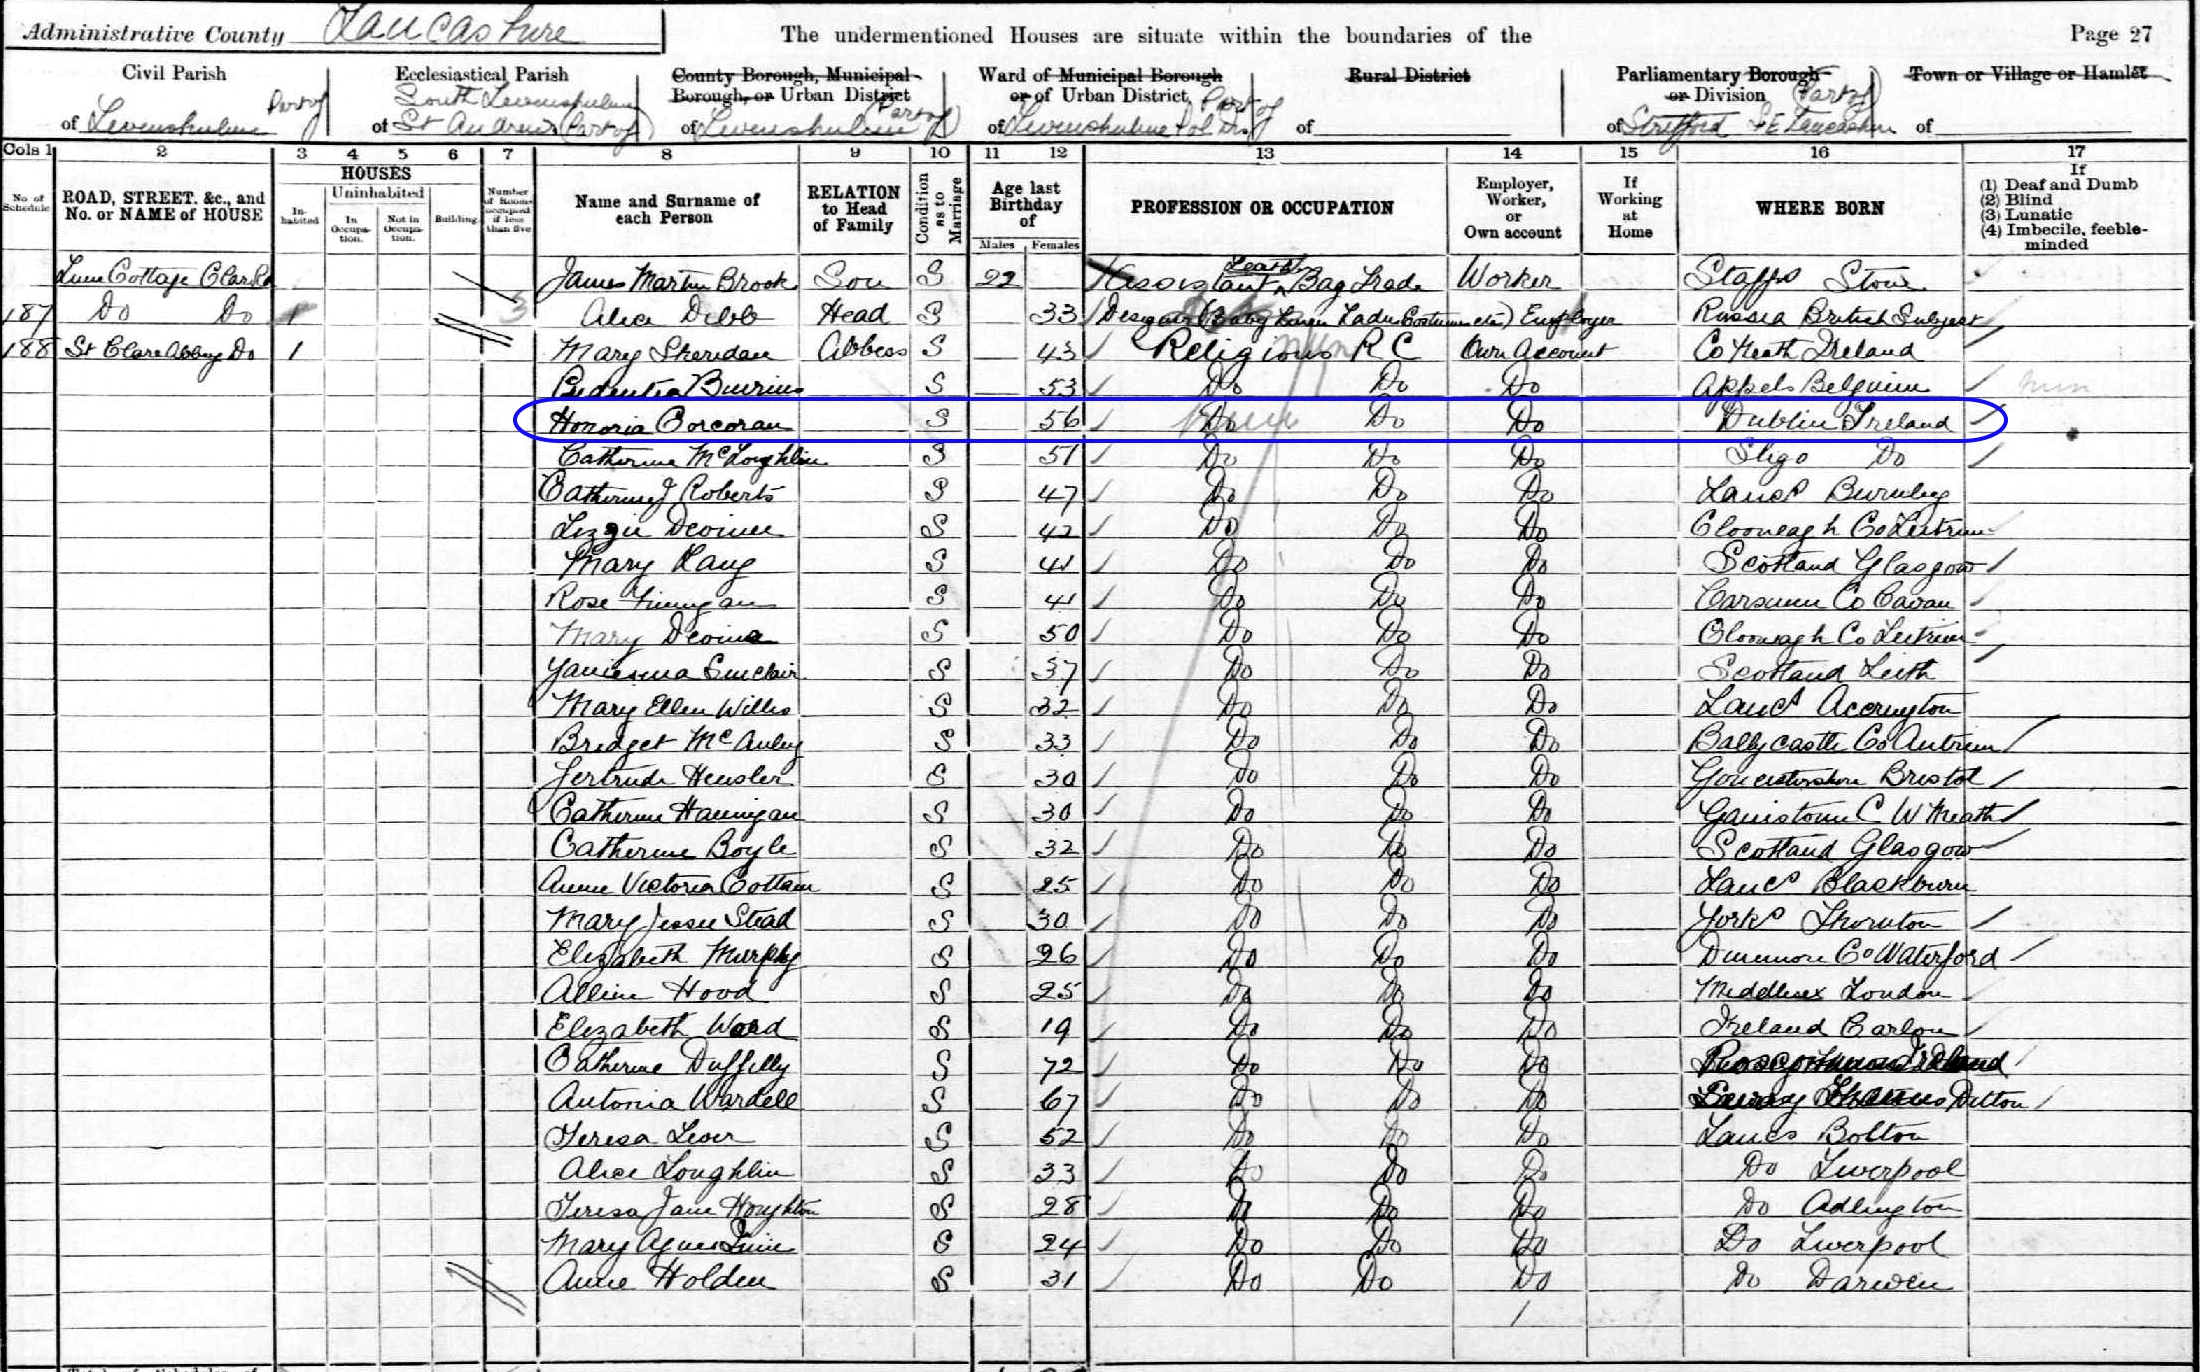 Administrative County Lancashire The undermentioned Houses are situate within the boundaries of the Page 27
Civil Parish Ecclesiastical Parish County Borough, Municipal Borough, or Urban District Ward of Municipal Borough or of Urban District, Rural District Parliamentary Borough or Division Town or Village or Hamlet
of Levenshulme Part of of South Levenshulme St Andrews (Part of) of Levenshulme (Part of) of Levenshulme Part of of of Stretford S E Lancashire (Part of) of
Cols 1 2 3 4 5 6 7 8 9 10 11 12 13 14 15 16 17
No of Schedule ROAD, STREET, &c., and No. or NAME of HOUSE HOUSES Inhabited Uninhabited In Occupation. Not in Occupation. Building Number of Rooms occupied if less than five Name and Surname of each Person RELATION to Head of Family Condition as to Marriage Age last Birthday of Males Females PROFESSION OR OCCUPATION Employer, Worker, or Own account If Working at Home WHERE BORN If (1) Deaf and Dumb (2) Blind (3) Lunatic (4) Imbecile, feeble-minded
Cottage Clare Rd James Martin Brook Son S 22 Assistant Leath Bag Trade Worker Staffs Stone
187 Do Do 1 3 Alice Dibb Head S 33 Designer (Baby Linen Ladies Costumes etc) Employer Russia British Subject
188 St Clare Abbey Do 1 Mary Sheridan Abbess S 43 Religious R C nun Own Account Co Meath Ireland
S 53 Do Do Do Appels Belguim nun
Honoria Corcoran S 56 Do Do Do Dublin Ireland
Catherine McLoughlin S 51 Do Do Do Sligo Do
Catherine J Roberts S 47 Do Do Do Lancs Burnley
Lizzie Devine S 42 Do Do Do Clooneagh Co Leitrim
Mary Lang S 41 Do Do Do Scotland Glasgow
Rose Finnigan S 41 Do Do Do Co Cavan
Mary Devine S 50 Do Do Do Clooneagh Co Leitrim
Jamesina Sinclair S 37 Do Do Do Scotland Leith
Mary Ellen Willis S 32 Do Do Do Lancs Accrington
Bredget McAuley S 33 Do Do Do Ballycastle Co Antrim
Gertrude Hensler S 30 Do Do Do Gloucestershire Bristol
Catherine Hannigan S 30 Do Do Do Gainstown C W Meath
Catherine Boyle S 32 Do Do Do Scotland Glasgow
Annie Victoria Cottam S 25 Do Do Do Lancs Blackburn
Mary Jessie Stead S 30 Do Do Do Yorks Thornton
Elizabeth Murphy S 26 Do Do Do Dunmore Co Waterford
Alline Hood S 25 Do Do Do Middlesex London
Elizabeth Ward S 19 Do Do Do Ireland Carlow
Catherine Duffilly S 72 Do Do Do Roscommon Ireland
Antonia Wardell S 67 Do Do Do Surrey Thames Ditton
Teresa Lever S 52 Do Do Do Lancs Bolton
Alice Loughlin S 33 Do Do Do Do Liverpool
Teresa Jane Houghton S 28 Do Do Do Do Adlington
Mary Agnes S 24 Do Do Do Do Liverpool
Annie Holden S 31 Do Do Do Do Darwen